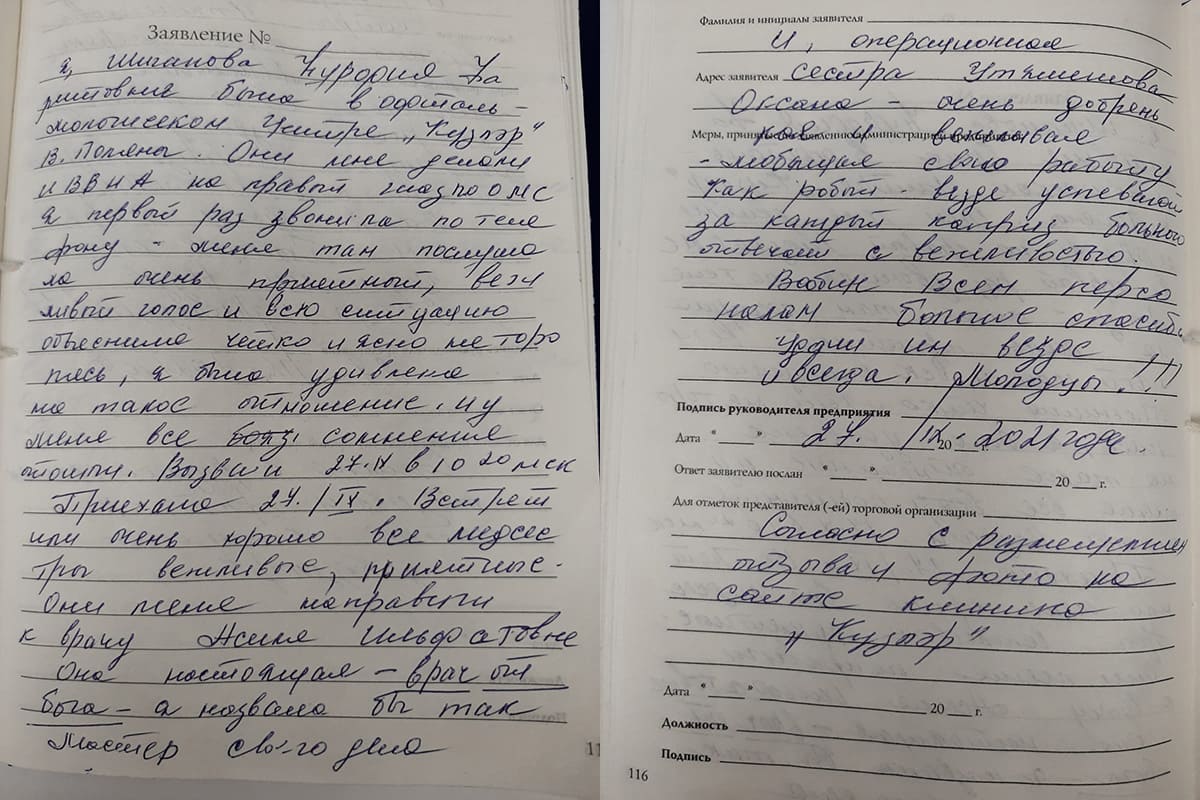 Заявление № ____
я, Шиганова Нурфия За
ритовна была в офталь-
мологическом центре „Кузляр"
В. Поляны. Они мне делали
ИВВИА на правый глаз по ОМС
Я первый раз звонила по теле
фону - меня там послуша
ла очень приятный, веж
ливый голос и всю ситуацию
объяснила четко и ясно не торо
пясь, я была удивлена
на такое отношение. и у
меня все сомнения
отошли. Вызвали 27.IX в 10 20 мск
Приехала 27./IX. Встрет
или очень хорошо все медсес
тры вежливые, приятные.
Они меня направили
к врачу Асия Ильфатовне
Она настоящая - врач от
бога - я назвала бы так
Мастер своего дела
11
Фамилия и инициалы заявителя
И, операционная
Адрес заявителя сестра Утяшева
Оксана - очень добрень
Меры, принятые по заявлению администрацией предприятия
кая и вежливая
- любящая свою работу
Как робот - везде успевает
за каждый каприз больного
отвечает с вежливостью.
Вобщи Всем персо
налам большое спасибо
удачи им везде
и всегда. Молодцы.!!!
Подпись руководителя предприятия
Дата "____" 27. /IX 20 - 2021 года.
Ответ заявителю послан "____" ____ 20 __ г.
Для отметок представителя (-ей) торговой организации
Согласна с размещением
отзыва и фото на
сайте клиники
„Кузляр"
Дата "____" ____ 20 __ г.
Должность
Подпись
116